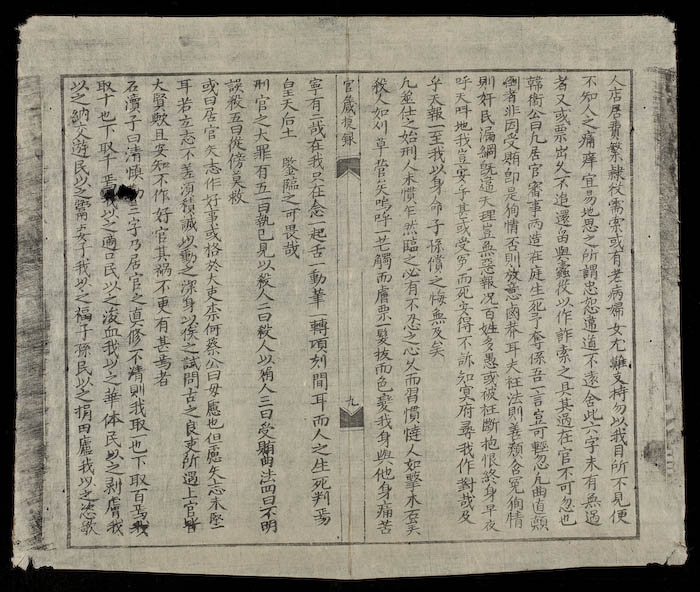 人店居費繁隸役需索或有老病婦女尤難支持勿以我目所不見便
不知人之痛癢宜易地思之所謂忠恕違道不遠舍此六字未有無過
者又或票出久不追還笛與蠹役以作詐索之具其過在官不可忽也
韓衛公曰凡居官審事兩造在庭生死予奪係吾一言豈可輕忽凡曲直顛
倒者非因受賄即是狥情否則放意鹵莽耳夫枉法則善類含冤狥情
則奸民漏網旣逆天理豈無惡報况百姓多愚或被枉斷抱恨終身早夜
呼天呌地我豈安乎甚或受冤而死安得不訴知冥府尋我作對哉及
乎天報一至我以身命子孫償之悔無及矣
凡筮仕之始刑人未慣乍然臨之必有不忍之心久而習慣撻人如擊木石矣
殺人如刈草菅矣嗚呼一芒觸而膚栗一髮拔而色變我身與他身痛苦
官箴捷錄
九
寧有二哉在我只在念一起舌一動筆一轉頃刻間耳而人之生死判焉
皇天后土 鑒臨之可畏哉
刑官之大罪有五一曰執己見以殺人二曰殺人以媚人三曰受賄曲法四曰不明
誤殺五曰從傍莫救
或曰居官矢志作好事或格於大吏柰何蔡公曰毋慮也但慮矢志未堅
耳若立志不差須積誠以動之深身以俟之試問古之良吏所遇上官皆
大賢歟且安知不作好官其禍不更有甚焉者
石瀆子曰清愼勤三字乃居官之直修不精則我取一也下取百焉我
取十也下取千焉 以之適口民以之浚血我以之華体民以之剥膚我
以之納交遊民以之鬻妻子我以之福子孫民以之捐田廬我以之恣歌